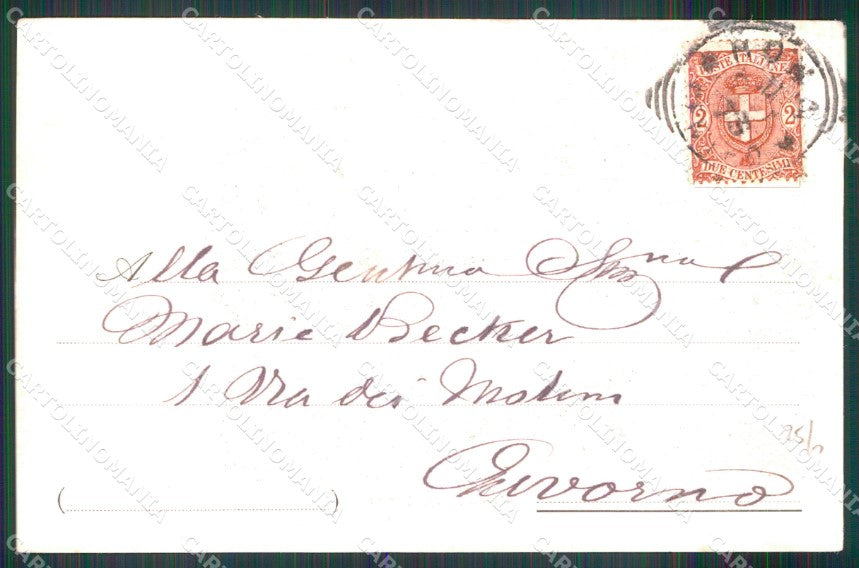 POSTE ITALIANE
2 2
DUE CENTESIMI
Alla Gentma
Marie Becker
1 Via dei Molini
Livorno
25/
( )
CARTOLINOMANIA